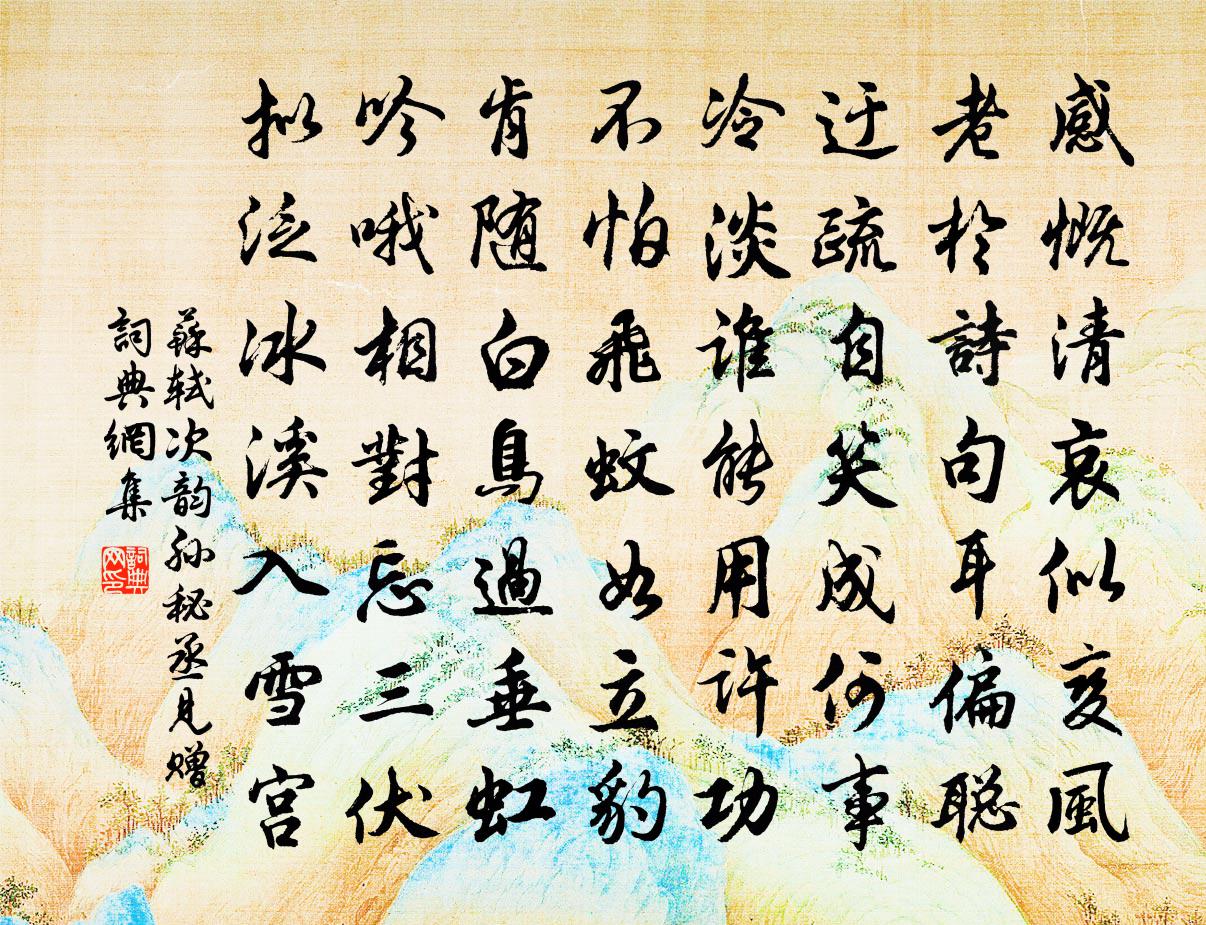 感慨清哀似变風
老於詩句耳偏聪
迂疏自笑成何事
冷淡谁能用许功
不怕飛蚊如立豹
肯随白鳥過垂虹
吟哦相對忘三伏
拟泛冰溪入雪宫
蘇轼次韵孙秘丞見赠
詞典網集
詞典網印